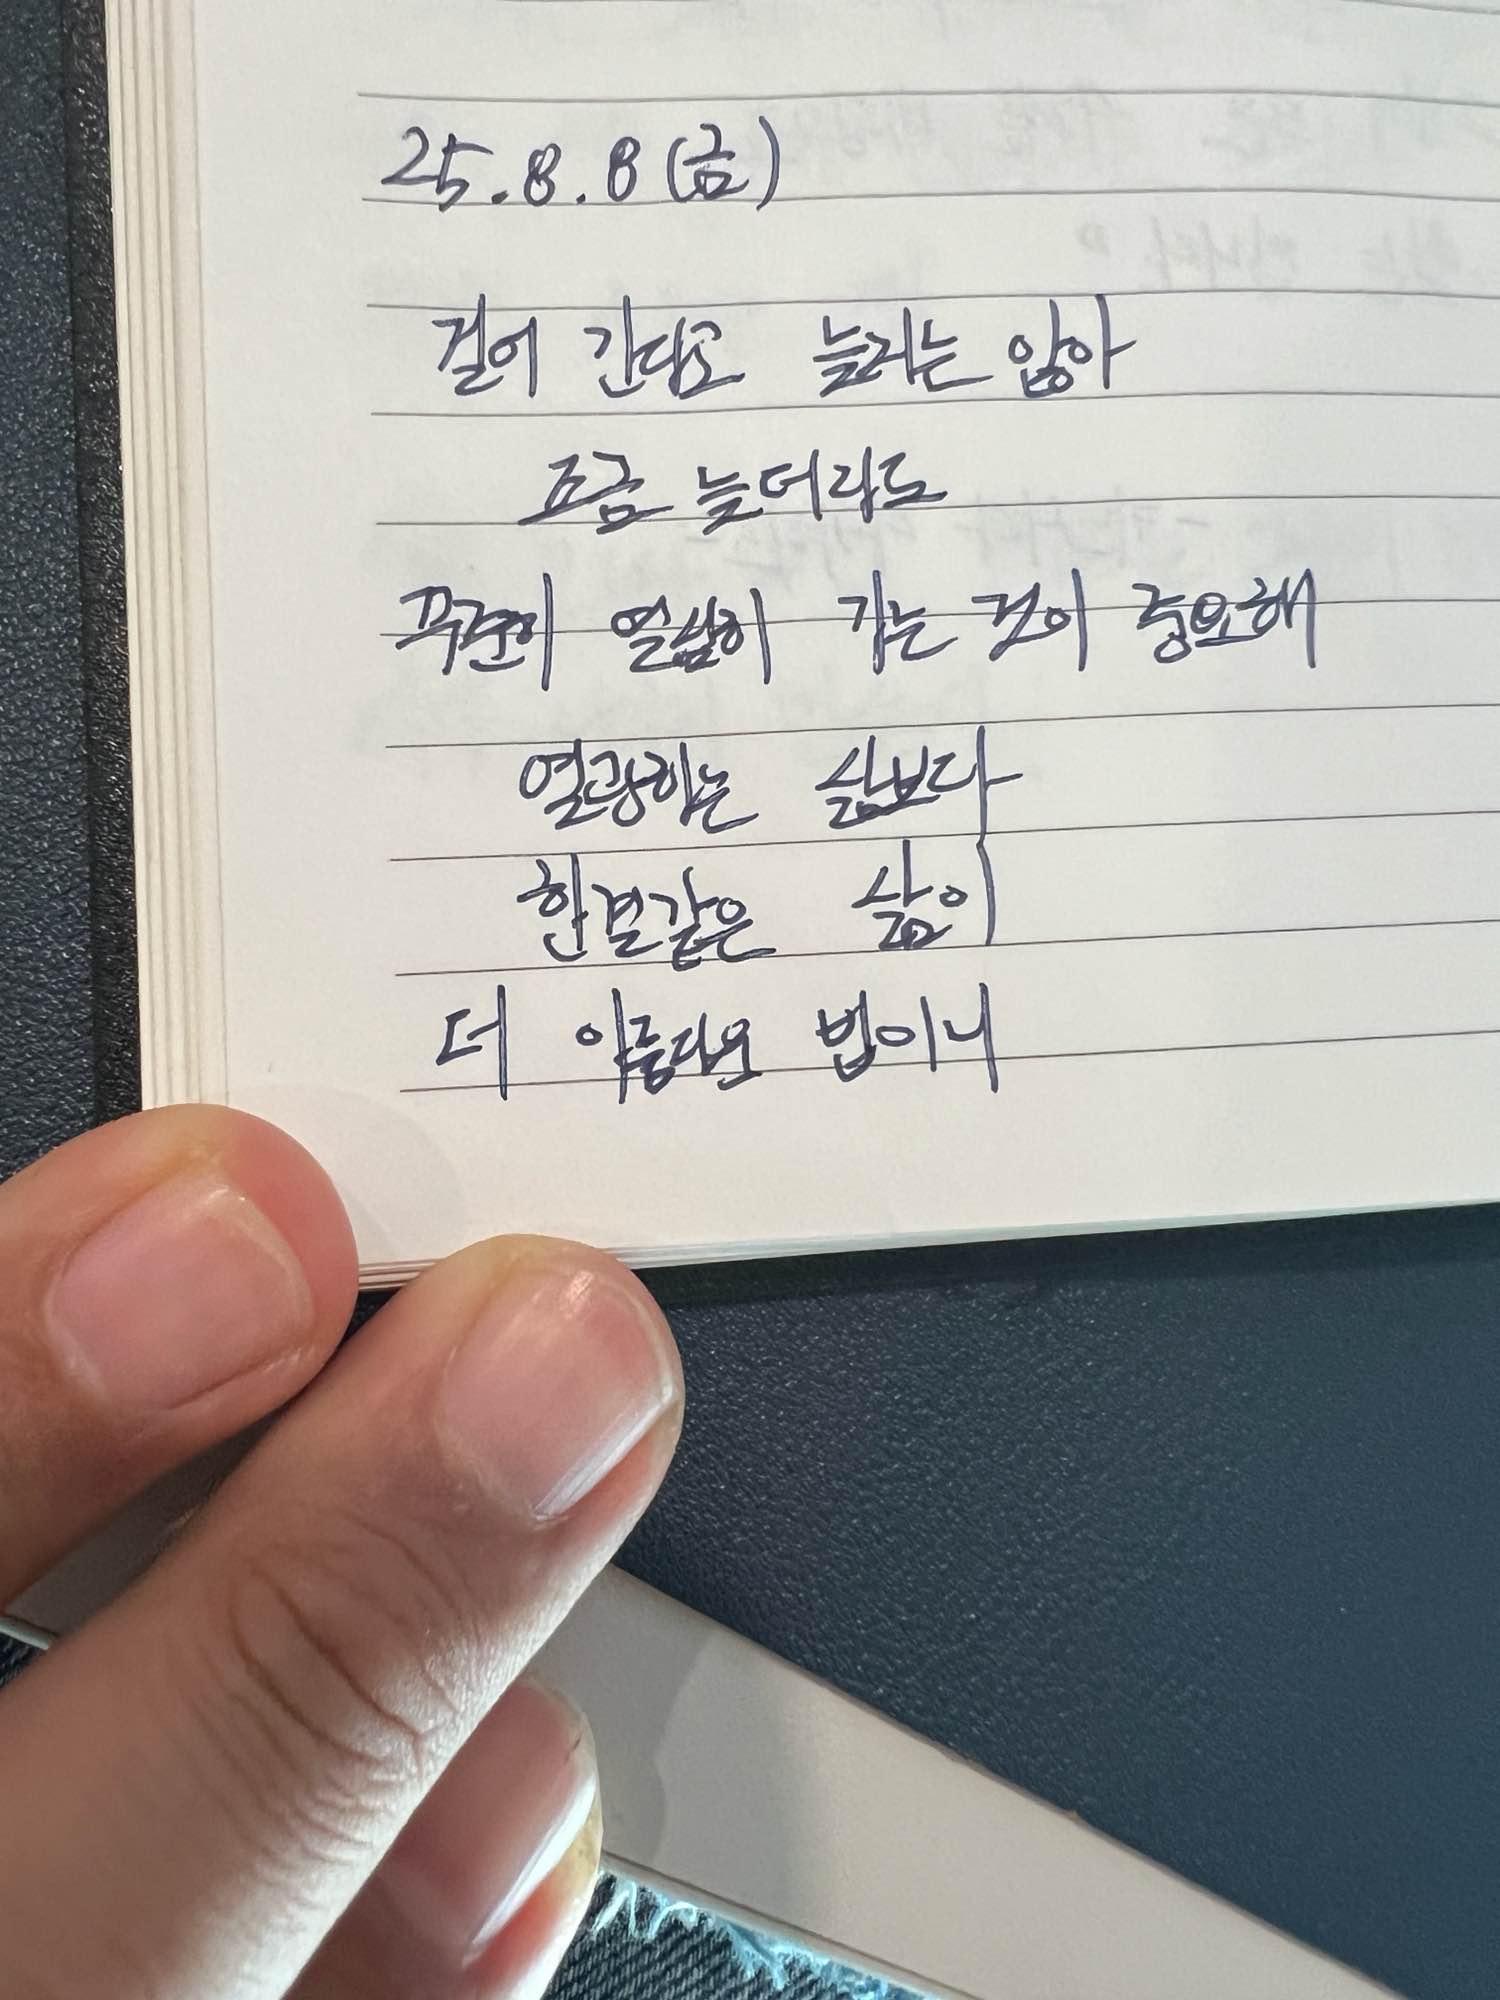 25.8.8 (금)
걸어 간다고 늘리는 않아
조금 늦더라도
꾸준히 열심히 가는 것이 중요해
열광하는 삶보다
한결같은 삶이
더 아름다운 법이니